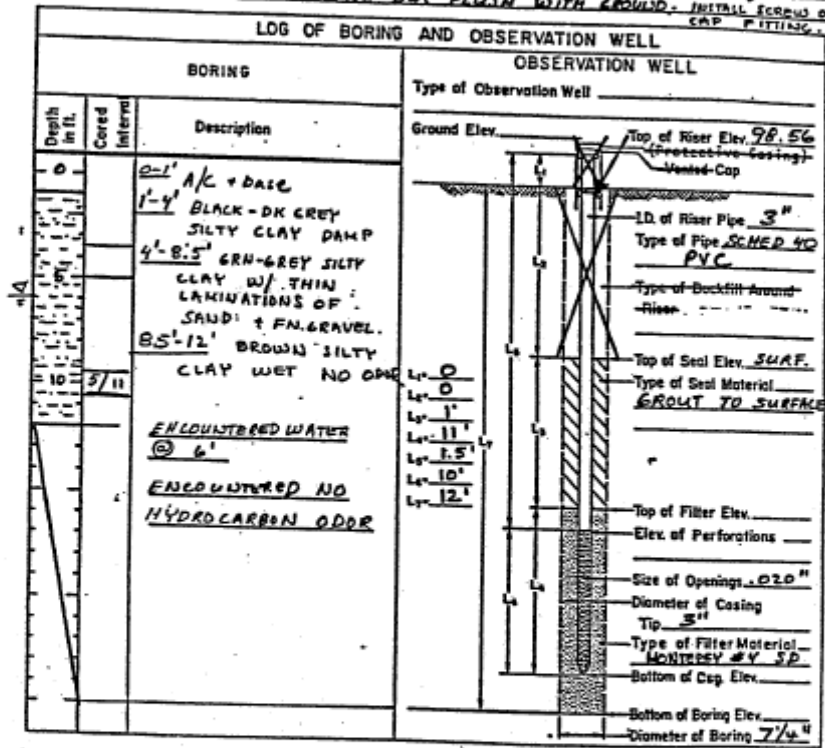 FLUSH WITH GROUND - INSTALL SCREW O
CAP FITTING.
LOG OF BORING AND OBSERVATION WELL
BORING
Depth in ft.
Cored Interval
Description
0
0-1' A/C + base
1'-4' BLACK-DK GREY
SILTY CLAY DAMP
4'-8.5' GRN-GREY SILTY
CLAY W/ THIN
LAMINATIONS OF
SAND + FN. GRAVEL.
8.5'-12' BROWN SILTY
CLAY WET NO ODOR
10
5/11
ENCOUNTERED WATER
@ 6'
ENCOUNTERED NO
HYDROCARBON ODOR
OBSERVATION WELL
Type of Observation Well
Ground Elev.
Top of Riser Elev. 98.56
(Protective Casing)
Vented Cap
I.D. of Riser Pipe 3"
Type of Pipe SCHED 40
PVC
Type of Backfill Around
Riser
Top of Seal Elev. SURF.
Type of Seal Material
GROUT TO SURFACE
L₁= 0
L₂= 0
L₃= 1'
L₄= 11'
L₅= 1.5'
L₆= 10'
L₇= 12'
L₁
L₂
L₅
L₃
L₇
L₆
L₄
Top of Filter Elev.
Elev. of Perforations
Size of Openings .020"
Diameter of Casing
Tip 3"
Type of Filter Material
MONTEREY #4 SD
Bottom of Csg. Elev.
Bottom of Boring Elev.
Diameter of Boring 7 1/4"